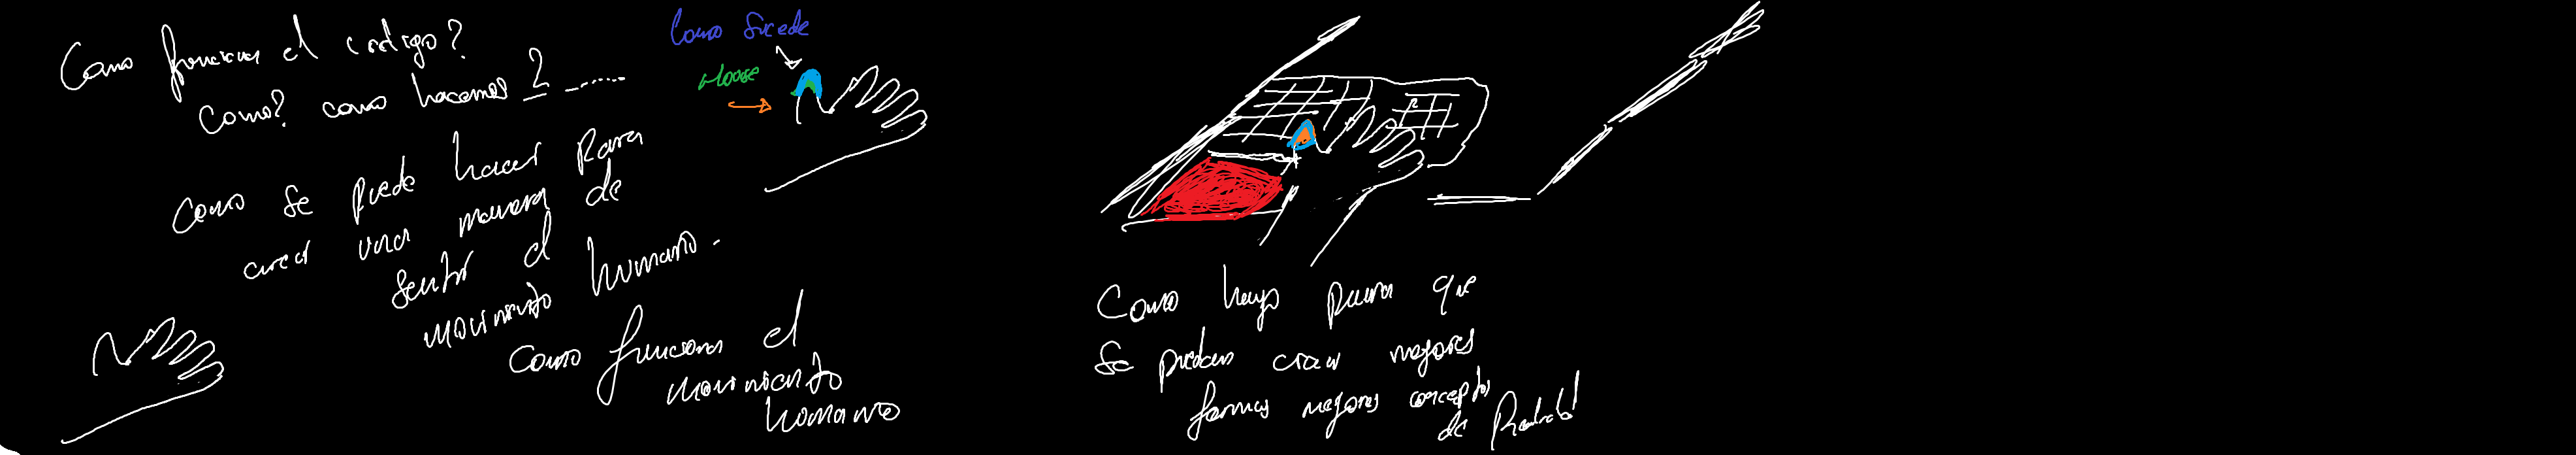 Como funciona el codigo?
Como? como hacemos ? ......
Como se puede hacer para
crear una manera de
sentir el
movimiento humano.
Como funciona el
movimiento
humano
Como Sucede
Mouse
Como hago para que
Se puedan crear mejores
formas mejores conceptos
de